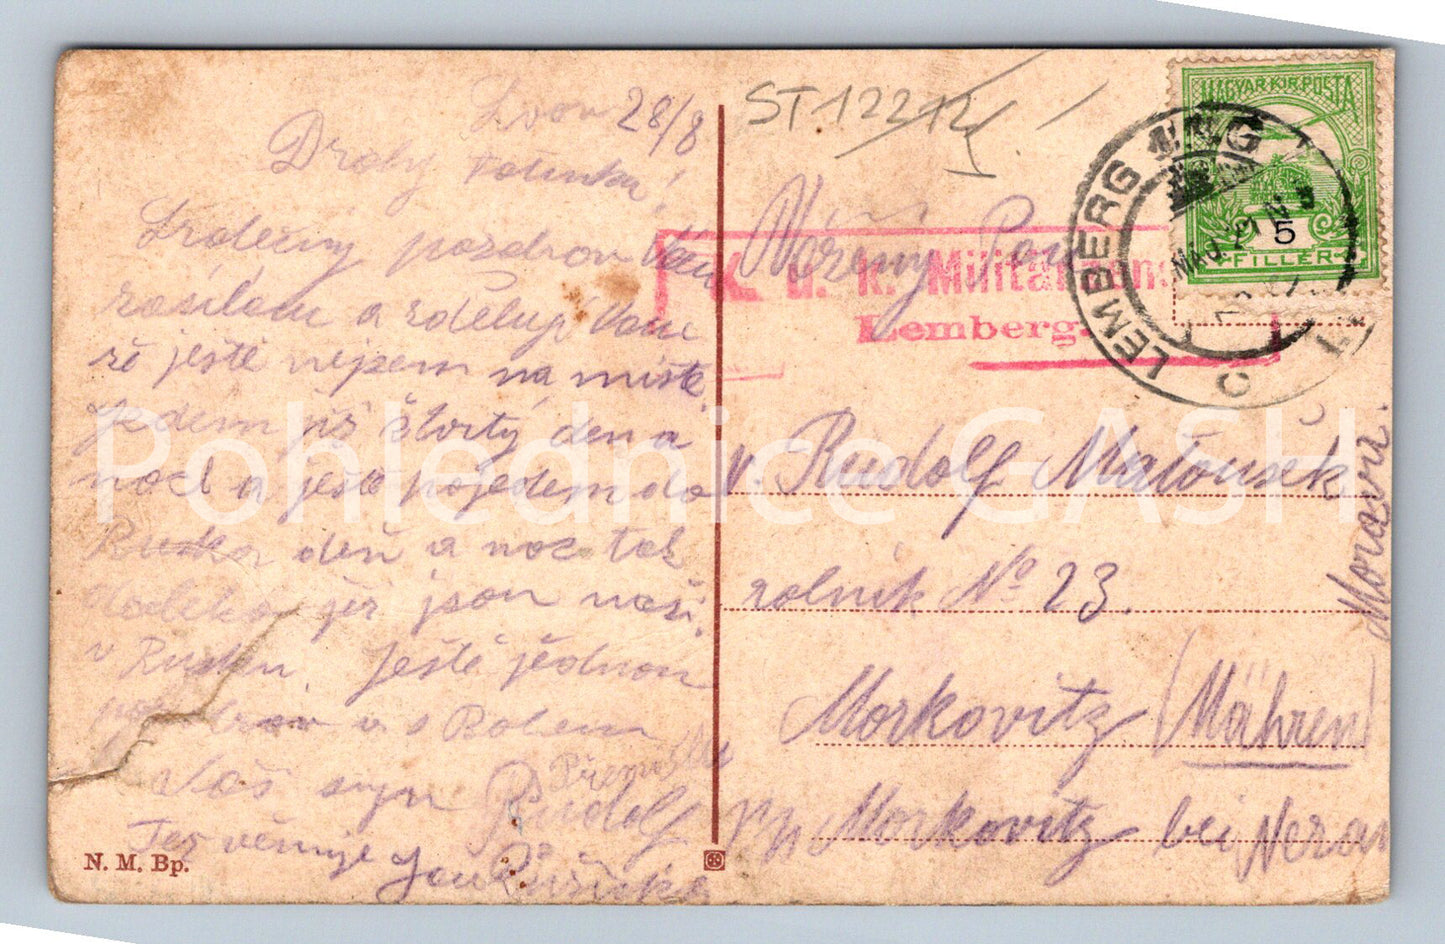 Lvov 28/8
Drahý tatínku!
Srdečný pozdrav Vám
zasílám a zděluji Vám
že ještě nejsem na místě.
Jedem již čtvrtý den a
noc a ještě pojedem do
Ruska den a noc tak
daleko již jsou naši
v Rusku. Ještě jednou
pozdrav a s Bohem
Váš syn Rudolf
Přemyslu
Též věrnyje Jan Růžička
N. M. Bp.
ST12212
MAGYAR KIR. POSTA
5
FILLÉR
LEMBERG LWG
K. u. k. Militärzens
Lemberg.
Vážený Pan
p. Rudolf Matoušek
rolník No 23.
Morkovitz (Mähren)
pp Morkovitz bei
Moravě.
Pohlednice GASH